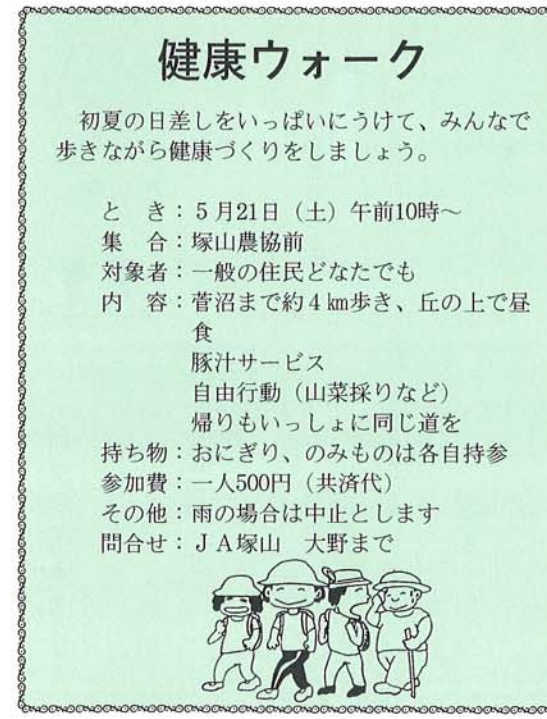 健康ウォーク
初夏の日差しをいっぱいにうけて、みんなで
歩きながら健康づくりをしましょう。
と　き：５月21日（土）午前10時～
集　合：塚山農協前
対象者：一般の住民どなたでも
内　容：菅沼まで約４㎞歩き、丘の上で昼
食
豚汁サービス
自由行動（山菜採りなど）
帰りもいっしょに同じ道を
持ち物：おにぎり、のみものは各自持参
参加費：一人500円（共済代）
その他：雨の場合は中止とします
問合せ：ＪＡ塚山　大野まで